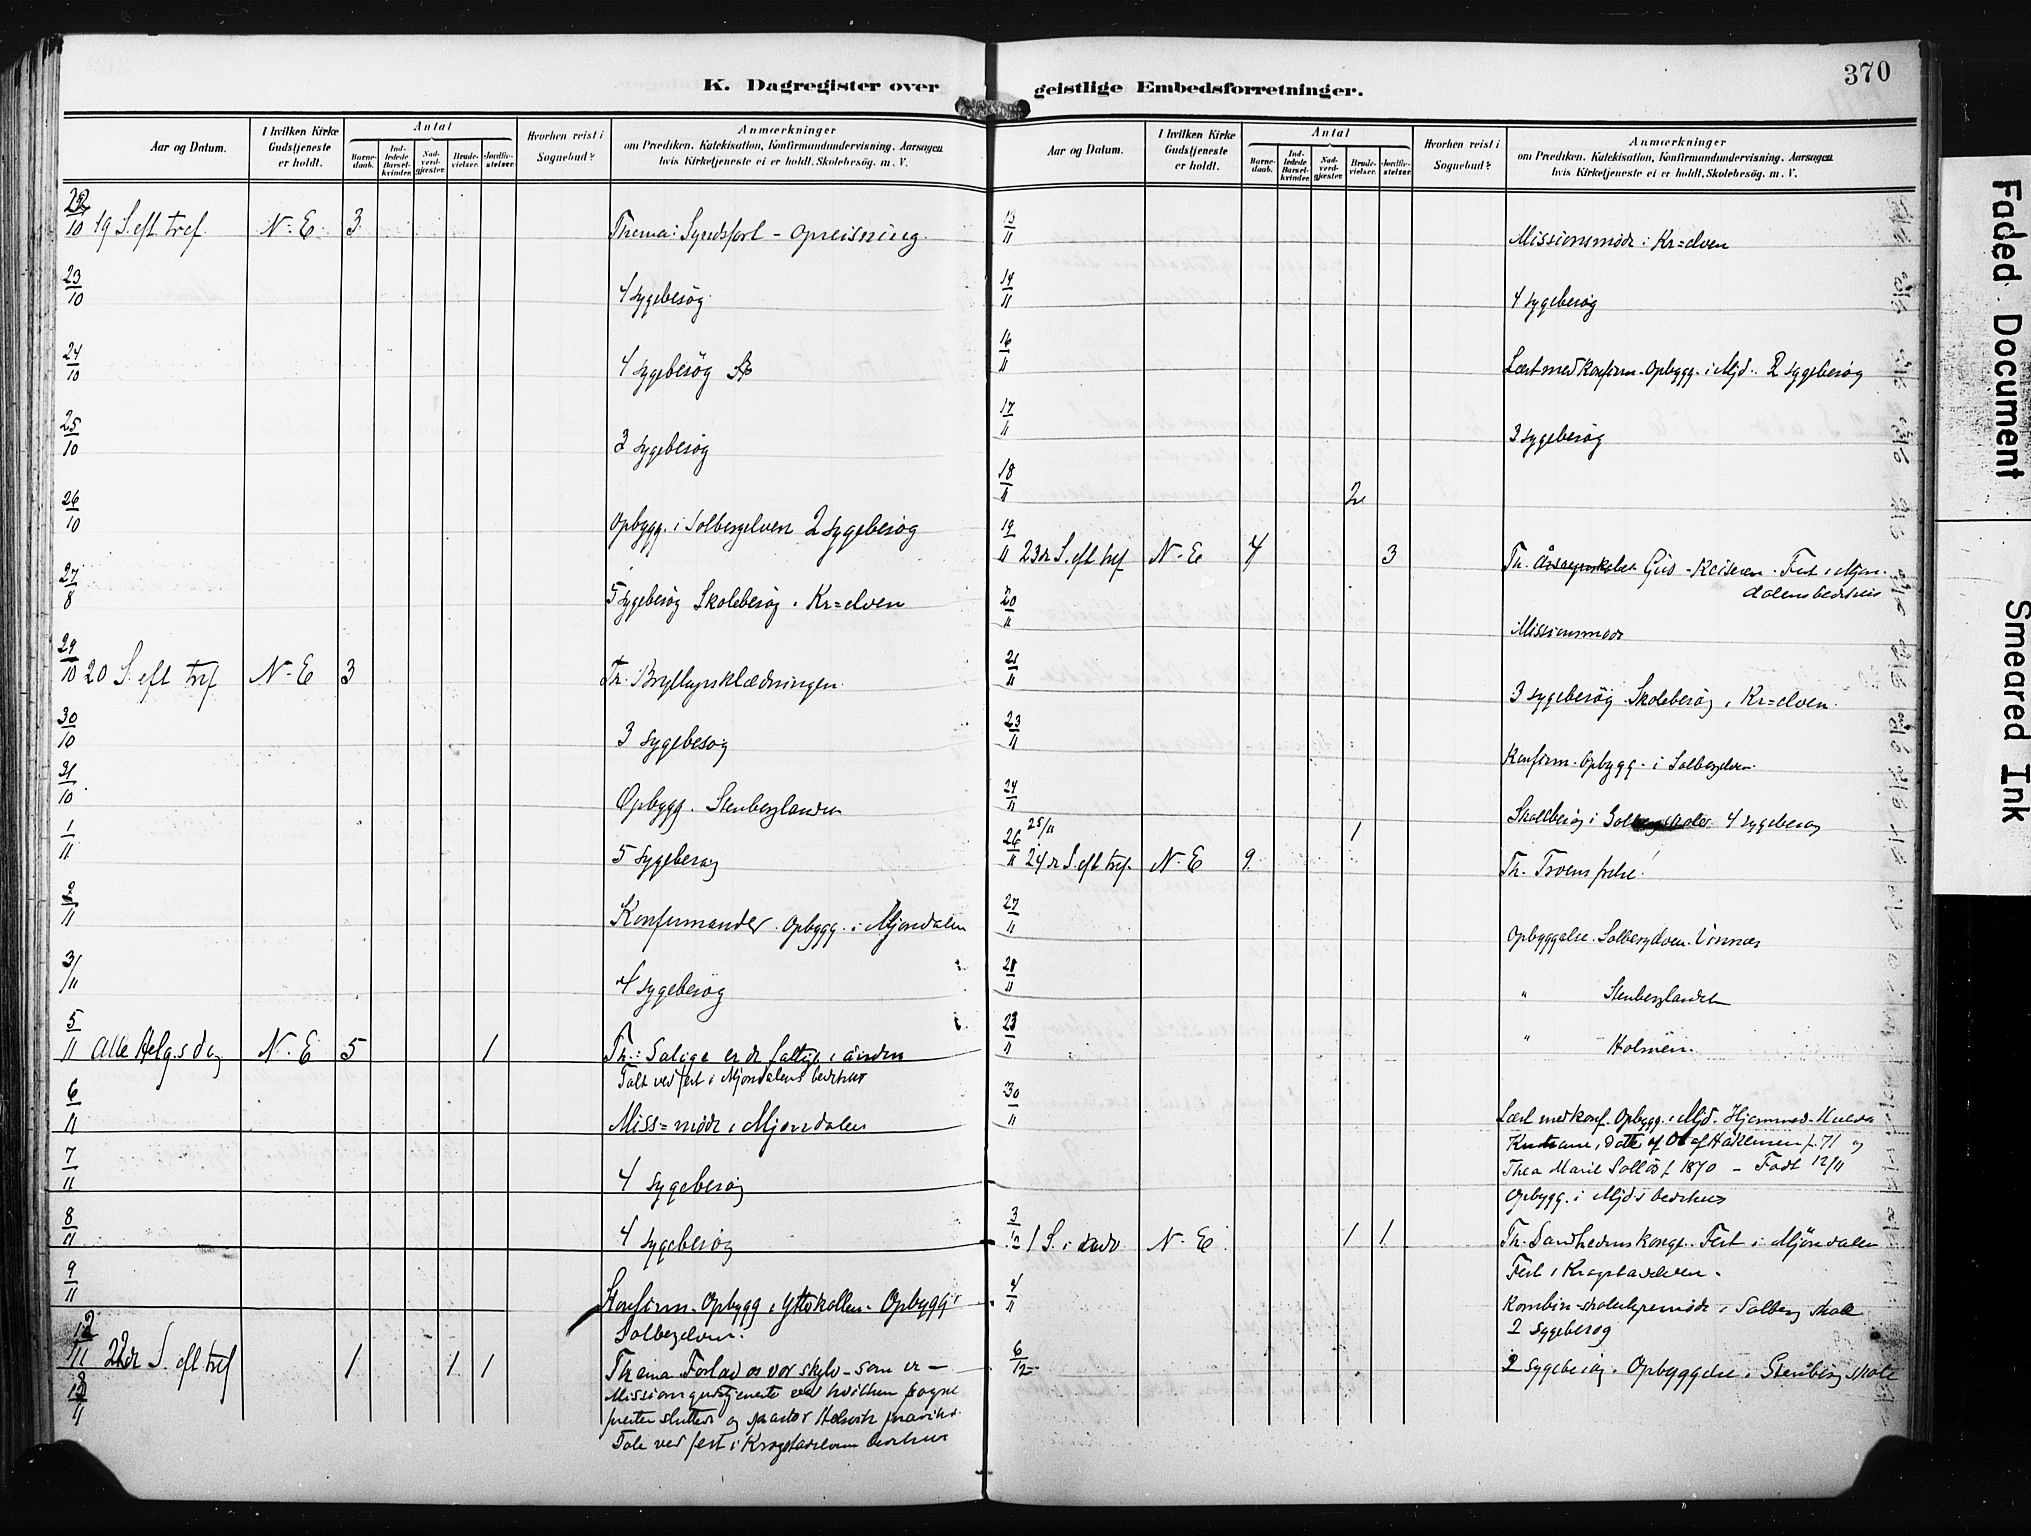 370
K. Dagregister over geistlige Embedsforretninger.
Aar og Datum.
I hvilken Kirke Gudstjeneste er holdt.
Antal
Barnedaab.
Indledede Barselkvinder.
Nadverdgjæster.
Brudevielser.
Jordfæstelser.
Hvorhen reist i Sognebud?
Anmærkninger
om Prædiken. Katekisation, Konfirmandundervisning. Aarsagen
hvis Kirketjeneste ei er holdt. Skolebesøg. m. V.
22/10 19 S. eft. tref. N. E. 3 Thema: Syndsforl - Opreisning.
23/10 4 sygebesøg
24/10 4 sygebesøg
25/10 3 sygebesøg
26/10 Opbygg. i Solbergelven 2 sygebesøg
27/8 5 sygebesøg Skolebesøg i Kr=elven
29/10 20 S. eft tref N. E 3 Th. Bryllupsklædningen.
30/10 3 sygebesøg
31/10 Opbygg. Stenberglandet
1/11 5 sygebesøg
2/11 Konfirmander. Opbygg. i Mjøndalen
3/11 4 sygebesøg
5/11 Alle Helg.sdag N. E 5 1 Th.: Salige er de fattige i ånden
Talt ved fest i Mjøndalens bedehus
6/11 Miss=møde i Mjøndalen
7/11 4 sygebesøg
8/11 4 sygebesøg
9/11 Konfirm. Opbygg i Yttrkollen. Opbygg
Solbergelven.
12/11 22de S. eft tref 1 1 1 Thema Forlad os vor skyld - som er -
Missionsgudstjeneste ved hvilken sogne
presten sluttede og pastor Helsvik
Tale ved fest i Krogstadelvens bedehus
13/11
Aar og Datum.
I hvilken Kirke Gudstjeneste er holdt.
Antal
Barnedaab.
Indledede Barselkvinder.
Nadverdgjæster.
Brudevielser.
Jordfæstelser.
Hvorhen reist i Sognebud?
Anmærkninger
om Prædiken. Katekisation, Konfirmandundervisning. Aarsagen
hvis Kirketjeneste ei er holdt. Skolebesøg. m. V.
13/11 Missionsmøde i Kr=elven
14/11 4 sygebesøg
16/11 Læst med konfirm. Opbygg. i Mjd. 2 sygebesøg
17/11 3 sygebesøg
18/11 2
19/11 23de S. eft tref N. E 4 3 Th. Gud - Keiseren. Fest i Mjøn-
dalens bedehus
20/11 Missionsmøde
21/11 3 sygebesøg Skolebesøg i Kr=elven.
23/11 Konfirm. Opbygg. i Solbergelven.
24/11 Skolebesøg i 4 sygebesøg
25/11 1
26/11 24de S. eft tref. N. E 9. Th. Troens frelse!
27/11 Opbyggelse. Solbergelven.
28/11 " Stenberglandet
23/11 " Holmen.
30/11 Læst med konf. Opbygg. i Mjd.
Thea Marie Solløs f. 1870 - Født 12/11
Opbygg. i Mjd.s bedehus
3/12 1 S. i adv. N. E. 1 1 Th. Sandhedens konge. Fest i Mjøndalen
Fest i Krogstadelven.
4/11 Kombin. skolestyremøde i Solberg skole
2 sygebesøg
6/12 2 sygebesøg. Opbyggelse i Stenberg skole
Faded Document
Smeared Ink